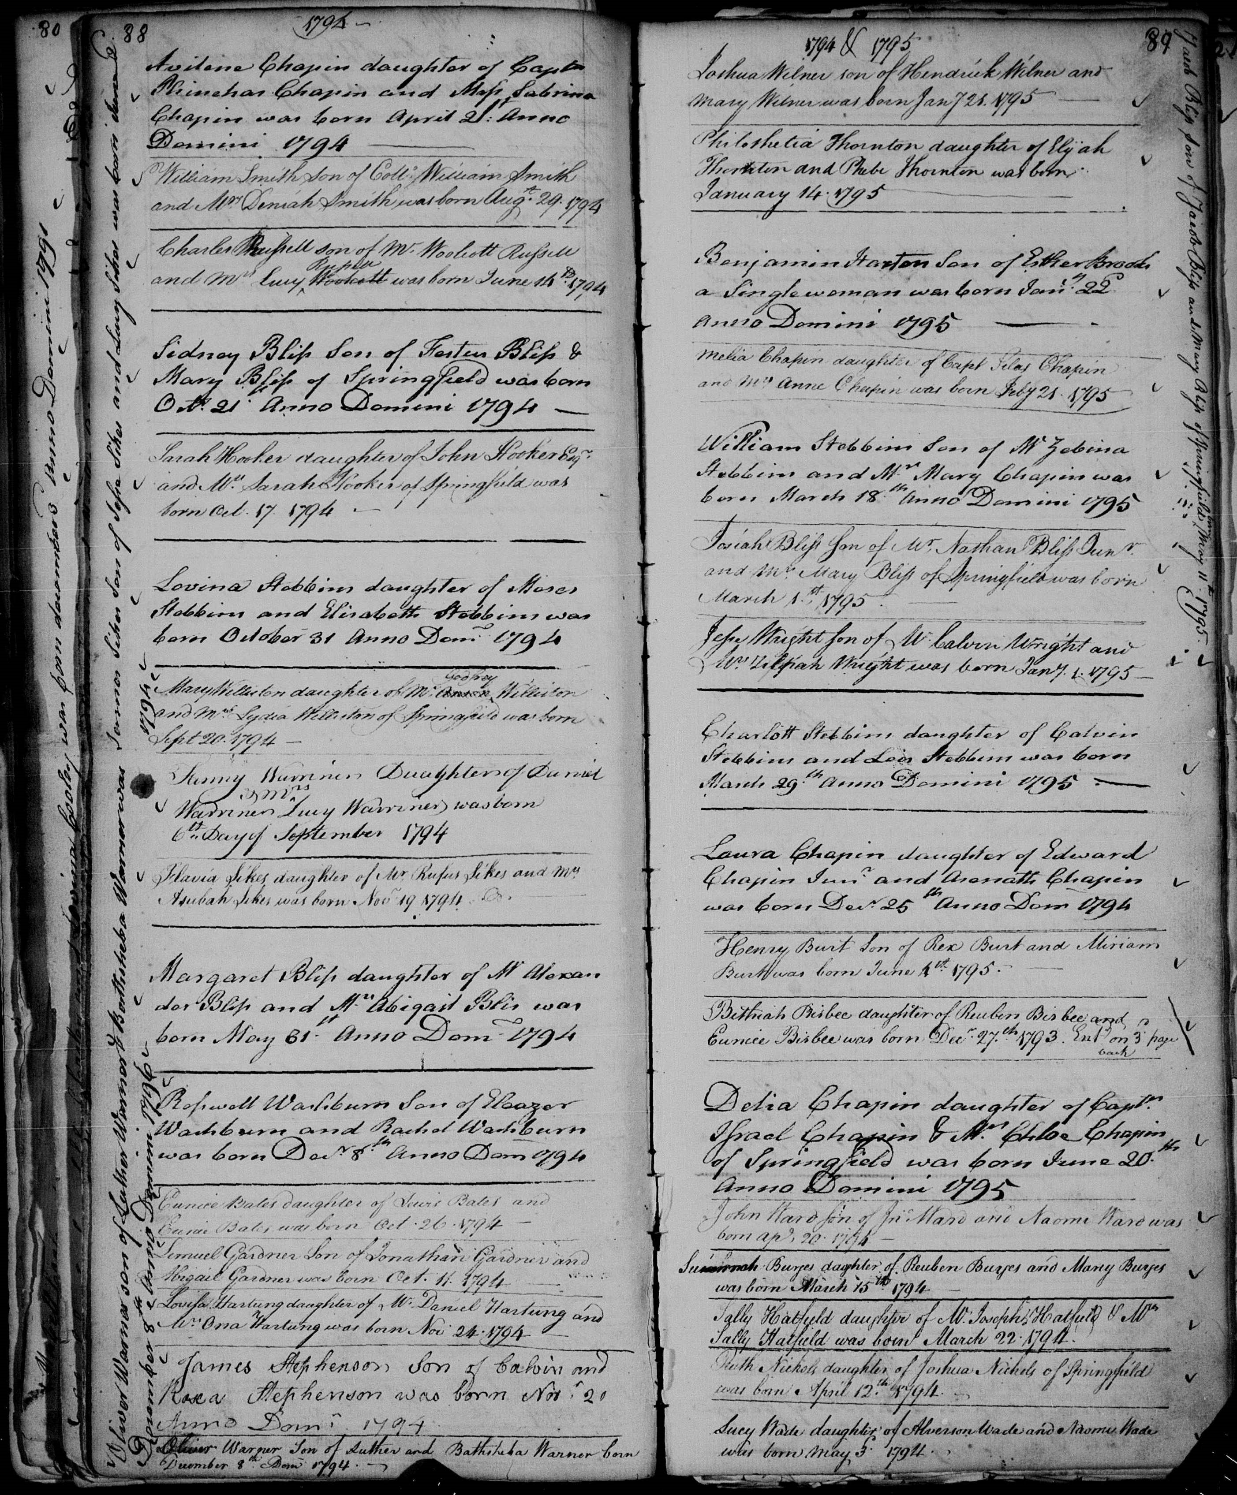 80
88
1794
Avilene Chapin daughter of Capt
Chapin and Miss Sabrina
Chapin was born April 2: Anno
Domini 1794
William Smith son of Coll: William Smith
and Mrs Smith was born Augst 29. 1794
Charles Russell son of Mr Woolcott Russell
and Mrs Lucy Russell Woolcott was born June 14th 1794
Sidney Bliss Son of Festus Bliss &
Mary Bliss of Springfield was born
Octr 21st Anno Domini 1794
Sarah Hooker daughter of John Hooker Esqr
and Mrs Sarah Hooker of Springfield was
born Oct. 17 1794
Lovina Stebbins daughter of Moses
Stebbins and Elisabeth Stebbins was
born October 31 Anno Dom 1794
Mary Williston daughter of Mr Godfrey Williston
and Mrs Lydia Williston of Springfield was born
Sept 20. 1794
Fanny Warriner Daughter of Daniel
& Mrs
Warriner Lucy Warriner was born
6th Day of September 1794
Flavia Sikes daughter of Mr Rufus Sikes and Mrs
Azubah Sikes was born Novr 19 1794
Margaret Bliss daughter of Mr Alexan
der Bliss and Mrs Abigail Bliss was
born May 31st Anno Dom 1794
Roswell Washburn Son of Eleazer
Washburn and Rachel Washburn
was born Decr 8th Anno Dom 1794
Eunice Bates daughter of Lewis Bates and
Eunice Bates was born Oct. 26. 1794
Lemuel Gardner Son of Jonathan Gardner and
Abigail Gardner was born Oct. 11. 1794
Lovisa Hartung daughter of Mr Daniel Hartung and
Mrs Ona Hartung was born Nov 24. 1794
James Stephenson Son of Calvin and
Roxa Stephenson was born Nov 20
Anno Domi 1794
Oliver Warner Son of Luther and Bathsheba Warner born
December 8th Dom 1794.
Oliver Warner son of Luther Warner & Bathsheba Warner was
December 8th Anno Domini 1796
1794 & 1795
89
Joshua Wilner son of Hendrick Wilner and
Mary Wilner was born Jany 21. 1795
Philothetia Thornton daughter of Elijah
Thornton and Phebe Thornton was born
January 14. 1795
Benjamin Son of Esther Brooks
a Single woman was born Jany 22d
Anno Domini 1795
Melia Chapin daughter of Capt Silas Chapin
and Mrs Anne Chapin was born Feby 21. 1795
William Stebbins Son of Mr Zebina
Stebbins and Mrs Mary Chapin was
born March 18th Anno Domini 1795
Josiah Bliss Son of Mr Nathan Bliss Junr
and Mrs Mary Bliss of Springfield was born
March 1st 1795
Jesse Wright son of Mr Calvin Wright and
Mrs Zilpah Wright was born Jany. 1. 1795
Charlott Stebbins daughter of Calvin
Stebbins and Lois Stebbins was born
March 29th Anno Domini 1795
Laura Chapin daughter of Edward
Chapin Junr and Asenath Chapin
was born Decr 25th Anno Dom 1794
Henry Burt Son of Rex Burt and Miriam
Burt was born June 4th 1795.
Bithiah Bisbee daughter of Reuben Bisbee and
Eunice Bisbee was born Decr 27th 1793. Entd on 3d page
back
Delia Chapin daughter of Captn
Israel Chapin & Mrs Chloe Chapin
of Springfield was born June 20th
Anno Domini 1795
John Ward Son of Jn Ward and Naomi Ward was
born Ap. 20. 1794
Burjes daughter of Reuben Burjes and Mary Burjes
was born March 15th 1794
Sally Hatfield daughter of Mr Joseph Hatfield & Mrs
Sally Hatfield was born March 22 1794.
Ruth Nichols daughter of Joshua Nichols of Springfield
was born April 12th 1794.
Lucy Wade daughter of Alverson Wade and Naomi Wade
was born May 3 1794
Jacob Bliss Son of Jacob Bliss and Mary Bliss of Springfield May 11th 1795